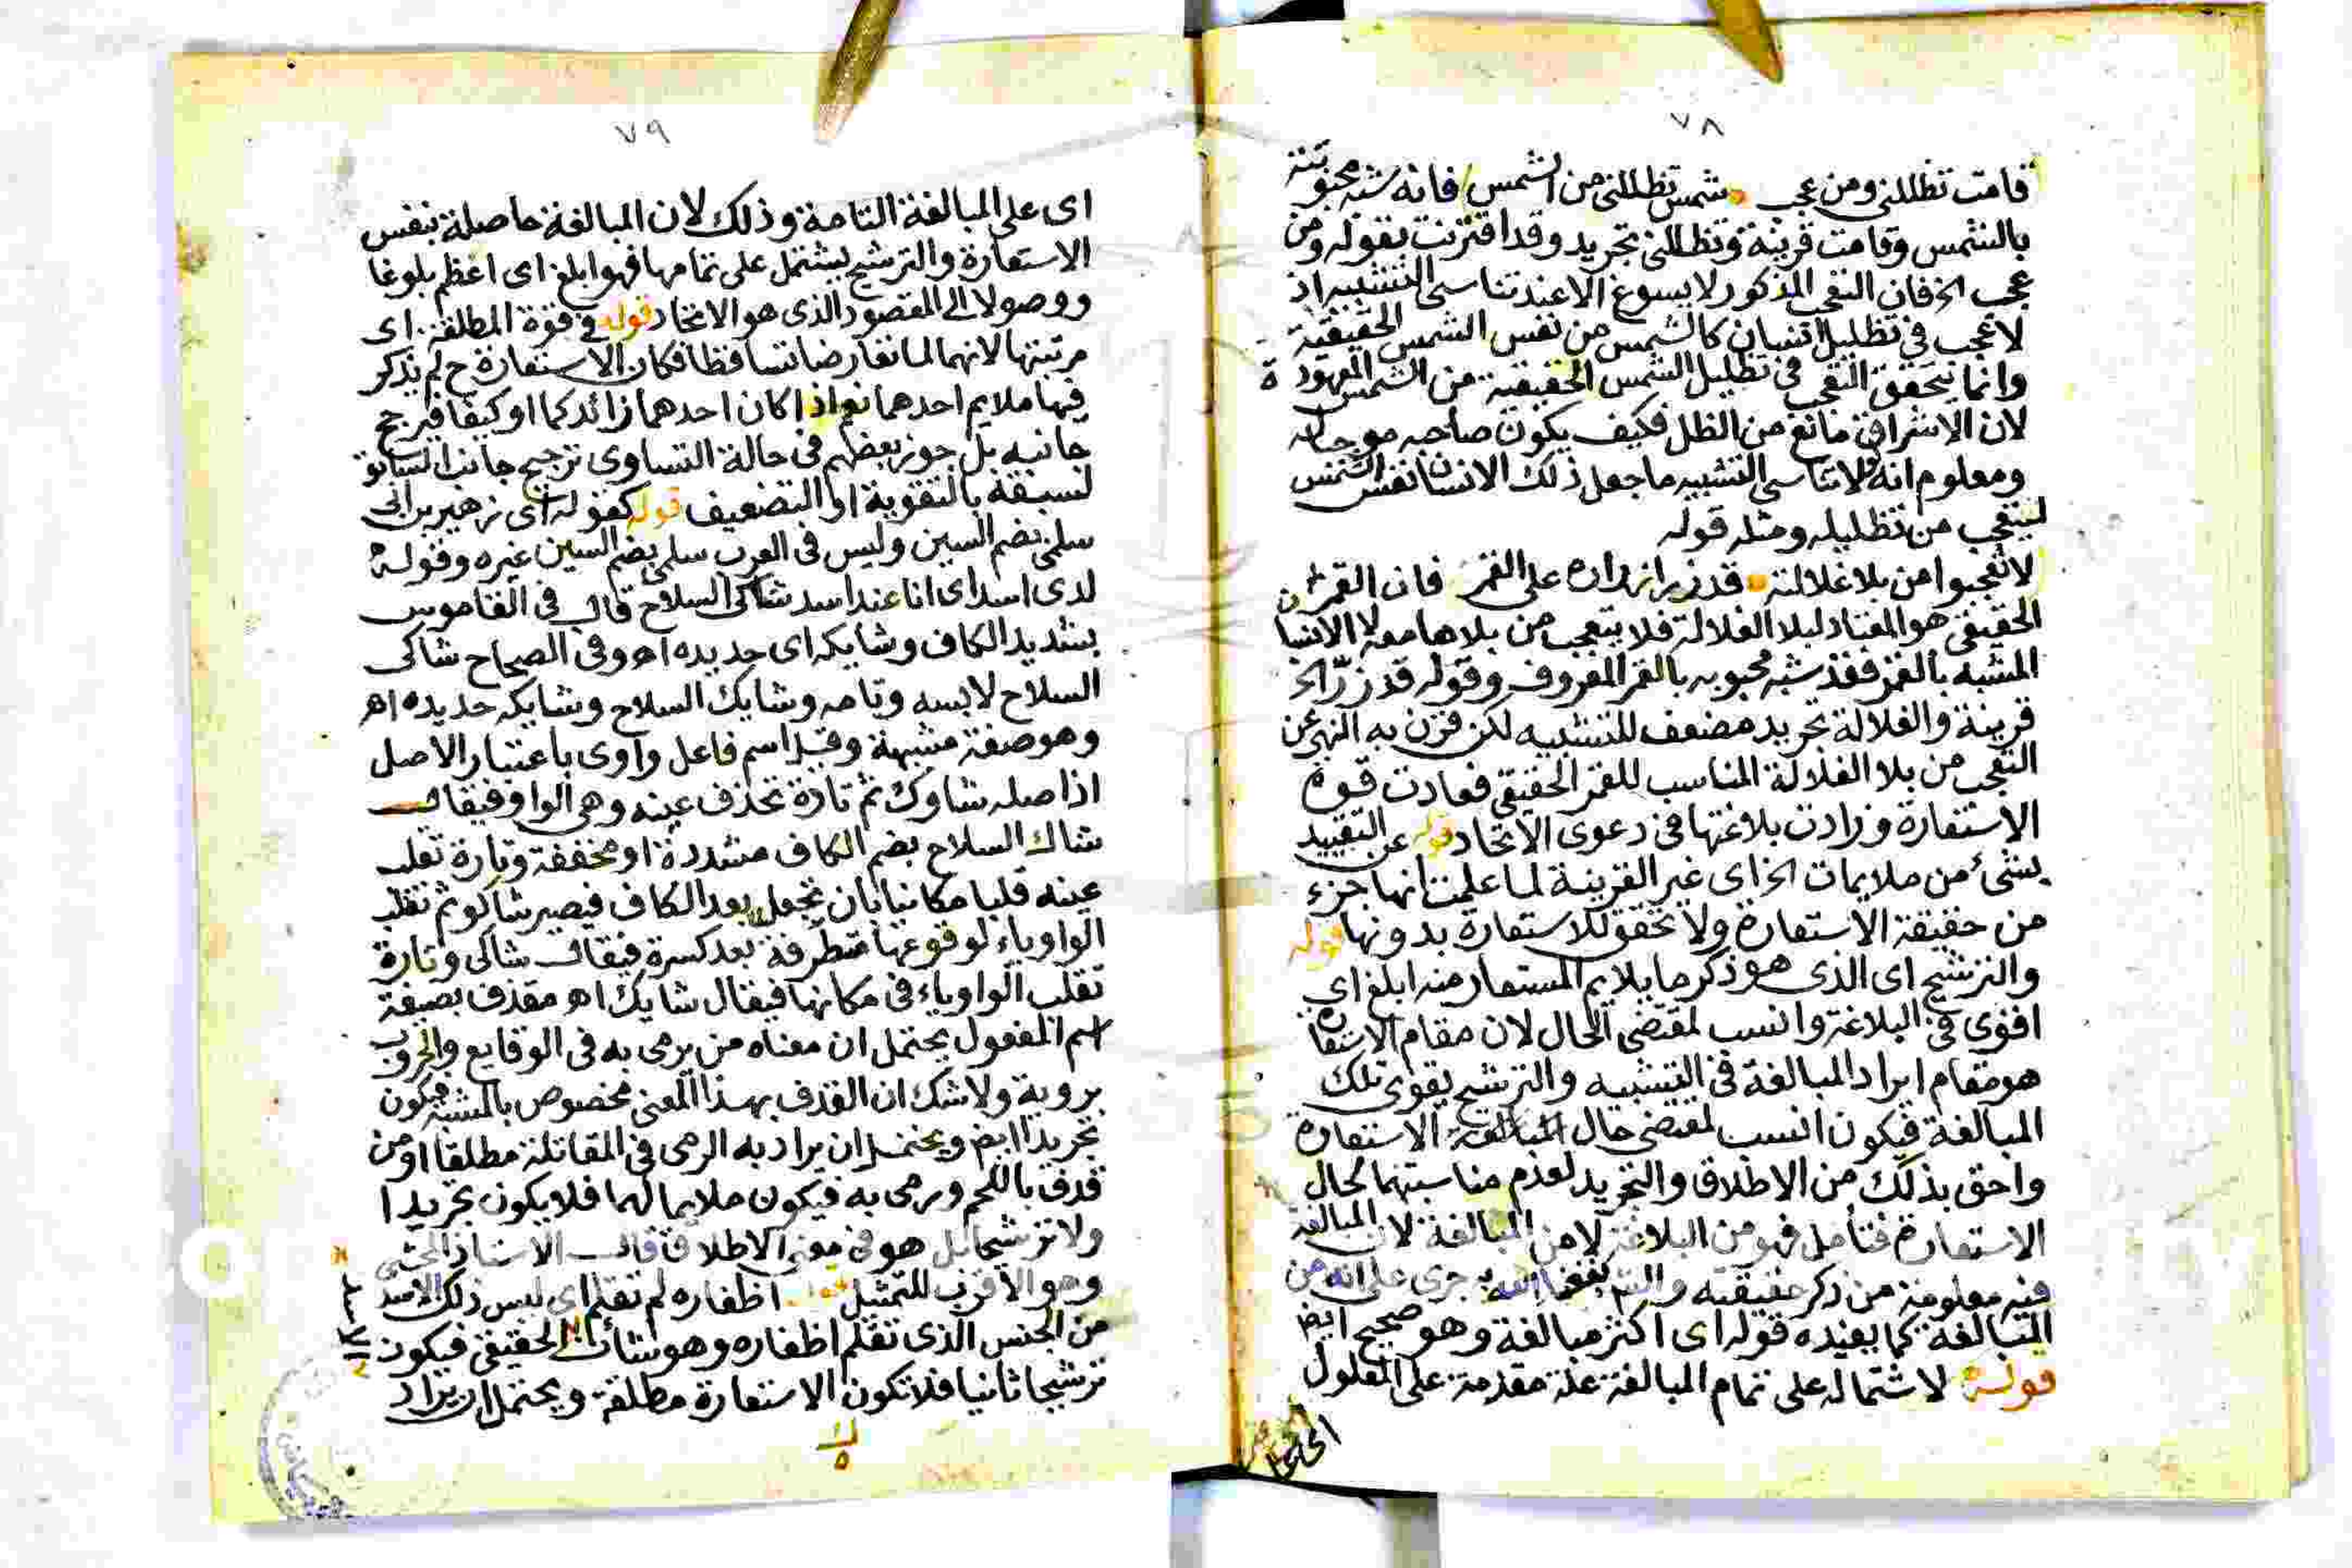 ٧٨
قامت تظللني ومن عجب شمس تظللني من الشمس فانه شبه محبوبته
بالشمس وقامت قرينة وتظللني تجريد وقد اقترنت بقوله ومن
عجب الخ فان التعجب المذكور لا يسوغ الا عند تناسي التشبيه اذ
لا عجب في تظليل انسان كالشمس من نفس الشمس الحقيقية
وانما يتحقق التعجب في تظليل الشمس الحقيقية من الشمس المعهودة
لان الاشراق مانع من الظل فكيف يكون صاحبه موجبا له
ومعلوم انه لولا تناسي التشبيه ما جعل ذلك الانسان نفس الشمس
ليتعجب من تظليله ومثله قوله
لا تعجبوا من بلا غلالته قد زر ازراره على القمر فان القمر
الحقيقي هو المعتاد لبلا الغلالة فلا يتعجب من بلاها معه لا الانسان
المشبه بالقمر فقد شبه محبوبه بالقمر المعروف وقوله قد زرّ الخ
قرينة والغلالة تجريد مضعف للتشبيه لكن قرن به النهي عن
التعجب من بلا الغلالة المناسب للقمر الحقيقي فعادت قوة
الاستعارة وزادت بلاغتها في دعوى الاتحاد قوله عن التقييد
بشئ من ملايمات الخ اي غير القرينة لما علمت انها جزء
من حقيقة الاستعارة ولا تحقق للاستعارة بدونها قوله
والترشيح اى الذى هو ذكر ما يلايم المستعار منه ابلغ اي
اقوى في البلاغة وانسب لمقتضى الحال لان مقام الاستعارة
هو مقام ايراد المبالغة في التشبيه والترشيح يقوى تلك
المبالغة فيكون انسب لمقتضى حال الاستعارة
واحق بذلك من الاطلاق والتجريد لعدم مناسبتهما لحال
الاستعارة فتأمل فهو من البلاغة لا من المبالغة لان المبالغة
فيه معلومة من ذكر حقيقته جرى على انه من
المبالغة كما يفيده قوله اى اكثر مبالغة وهو صحيح ايض
قوله لاشتماله على تمام المبالغة علة مقدمة على المعلول
٧٩
اى على المبالغة التامة وذلك لان المبالغة حاصلة بنفس
الاستعارة والترشيح يشتمل على تمامها فهو ابلغ اى اعظم بلوغا
ووصولا الى المقصود الذى هو الاتحاد قوله في قوة المطلقة اى
مرتبتها لانهما لما تعارضا تساقطا فكان الاستعارة ح لم يذكر
فيها ملايم احدهما نعم اذا كان احدهما زائد كما او كيفا فيرجح
جانبه بل جوز بعضهم في حالة التساوى ترجيح جانب السابق
لسبقه بالتقوية او التضعيف قوله كقوله اى زهير بن ابى
سلمى بضم السين وليس في العرب سلمى بضم السين غيره وقوله
لدى اسد اى انا عند اسد شاكى السلاح قال في القاموس
بتشديد الكاف وشايكه اى حديده اه وفي الصحاح شاكى
السلاح لابسه وتامه وشايك السلاح وشايكه حديده اه
وهو صفة مشبهة وقيل اسم فاعل واوى باعتبار الاصل
اذ اصله شاوك ثم تارة تحذف عينه وهى الواو فيقال
شاك السلاح بضم الكاف مشددة او مخففة وتارة تقلب
عينه قلبا مكانيا بان تجعل بعد الكاف فيصير شاكو ثم تقلب
الواو ياء لوقوعها متطرفة بعد كسرة فيقال شاكى وتارة
تقلب الواو ياء في مكانها فيقال شايك اه مقذف بصيغة
اسم المفعول يحتمل ان معناه من يرمى به في الوقايع والحروب
بروية ولا شك ان القذف بهذا المعنى مخصوص بالمشبه فيكون
تجريدا ايض ويحتمل ان يراد به الرمى في المقاتلة مطلقا او من
قذف باللحم ورمى به فيكون ملايما لهما فلا يكون تجريدا
ولا ترشيحا بل هو في معنى الاطلاق قال الاستاذ المحشى
وهو الاقرب للتمثيل قوله اظفاره لم تقلم اى ليس ذلك الاسد
من الجنس الذى تقلم اظفاره وهو شان الحقيقى فيكون
ترشيحا ثانيا فلا تكون الاستعارة مطلقة ويحتمل ان يراد
الاسد